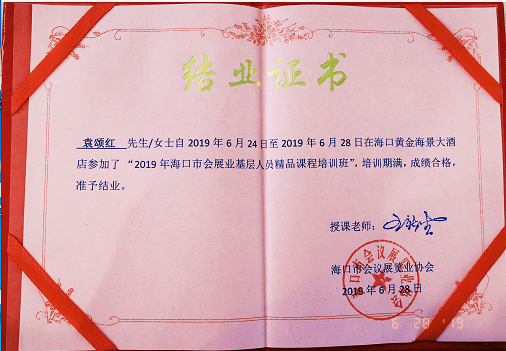 结业证书
袁颂红 先生/女士自2019年6月24日至2019年6月28日在海口黄金海景大酒
店参加了“2019年海口市会展业基层人员精品课程培训班”，培训期满，成绩合格，
准予结业。
授课老师：
海口市会议展览业协会
2019年6月28日
海口市会议展览业协会
6 28 '19